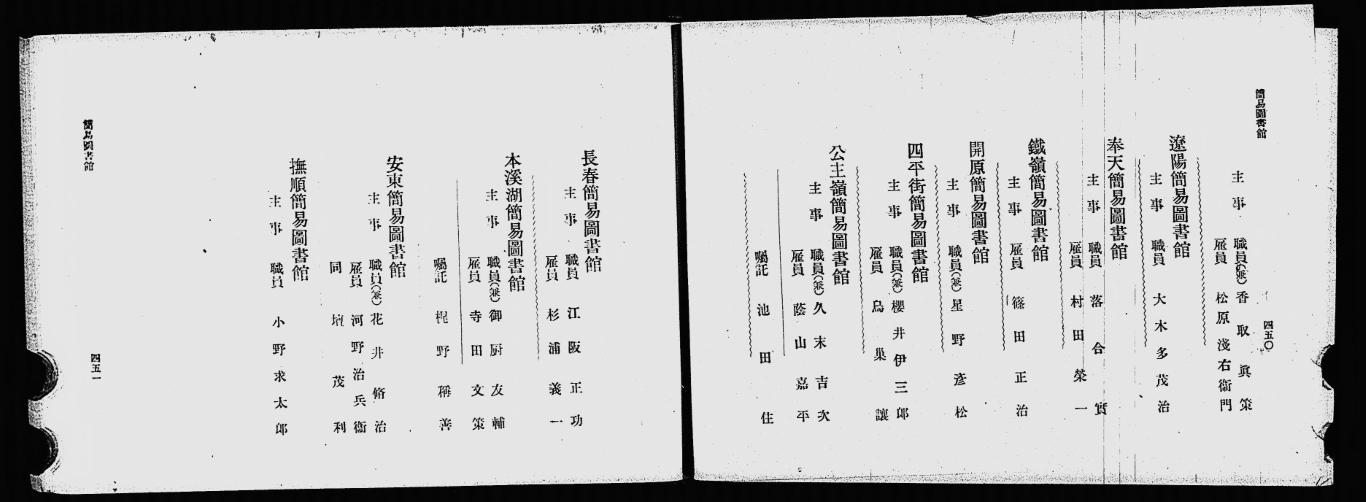 簡易圖書館
四五〇
主事 職員(兼) 香取眞策
雇員 松原淺右衞門
遼陽簡易圖書館
主事 職員 大木多茂治
奉天簡易圖書館
主事 職員 落合實
雇員 村田榮一
鐵嶺簡易圖書館
主事 雇員 篠田正治
開原簡易圖書館
主事 職員(兼) 星野彥松
四平街簡易圖書館
主事 職員(兼) 櫻井伊三郎
雇員 烏巢讓
公主嶺簡易圖書館
主事 職員(兼) 久末吉次
雇員 蔭山嘉平
囑託 池田住
長春簡易圖書館
主事 職員 江阪正功
雇員 杉浦義一
本溪湖簡易圖書館
主事 職員(兼) 御厨友輔
雇員 寺田文策
囑託 梶野稱善
安東簡易圖書館
主事 職員(兼) 花井脩治
雇員 河野治兵衞
同 茂利
撫順簡易圖書館
主事 職員 小野求太郎
簡易圖書館
四五一